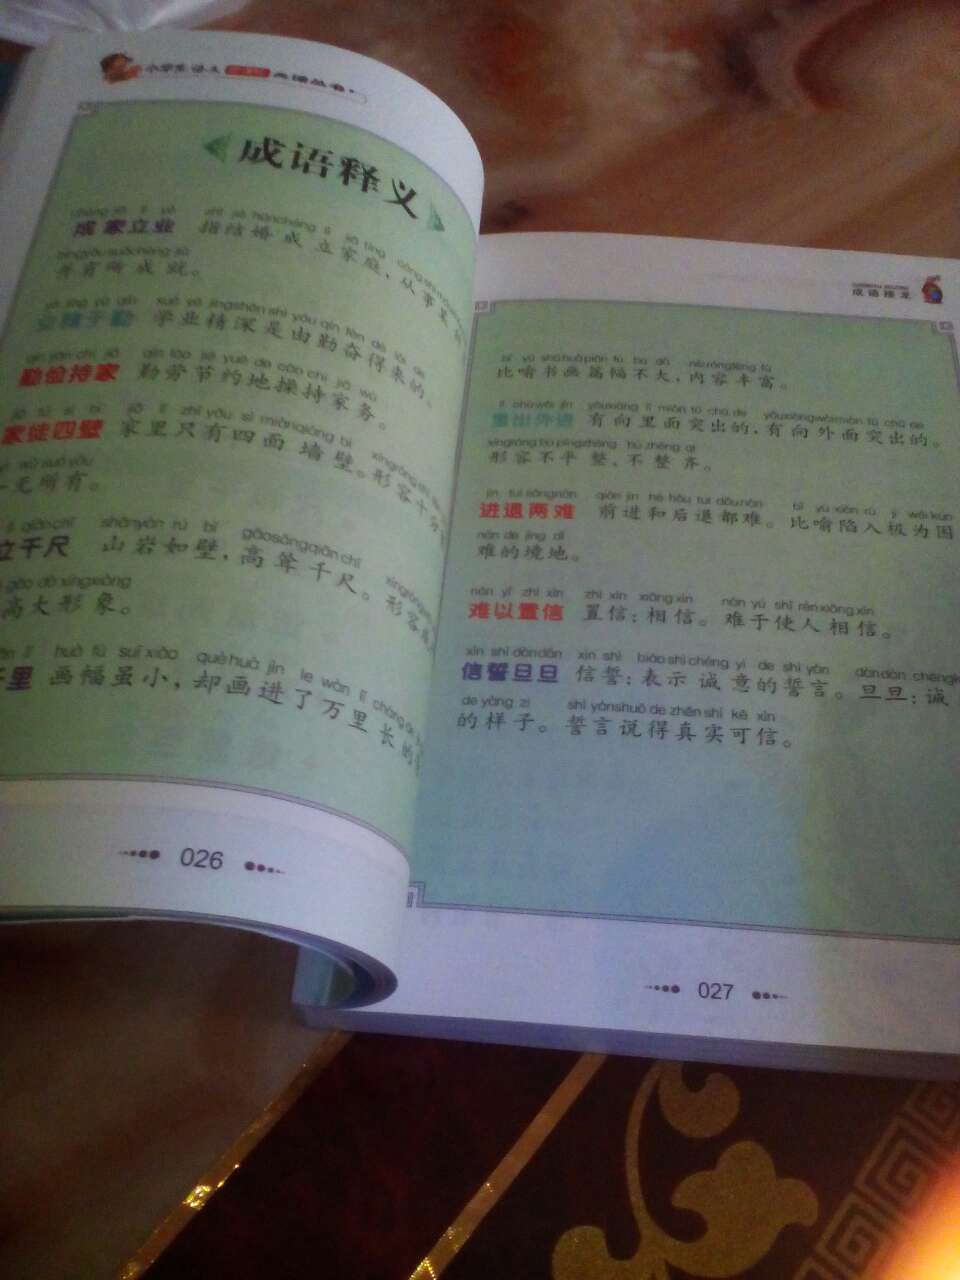 小学生语文
成语释义
chéng jiā lì yè zhǐ jié hūnchéng lì jiā tíng
成家立业 指结婚成立家庭，从事某
bìngyǒu suǒchéng jiù
并有所成就。
yè jīng yú qín xué yè jīngshēn shì yóu qín fèn dé lái de
业精于勤 学业精深是由勤奋得来的。
qín jiǎn chí jiā qín láo jié yuē de cāo chí jiā wù
勤俭持家 勤劳节约地操持家务。
jiā tú sì bì jiā lǐ zhǐ yǒu sì miànqiáng bì
家徒四壁 家里只有四面墙壁。形容十分
wú suǒ yǒu
一无所有。
lì qiān chǐ shānyán rú bì gāosǒngqiān chǐ
立千尺 山岩如壁，高耸千尺。形容
gāo dà xíngxiàng
高大形象。
huà fú suī xiǎo què huà jìn le wàn lǐ cháng
里 画幅虽小，却画进了万里长的
026
成语接龙
bǐ yù shū huà piān fú bú dà nèiróngfēng fù
比喻书画篇幅不大，内容丰富。
lǐ chū wài jìn yǒuxiàng lǐ miàn tū chū de yǒuxiàngwàimiàn tū chū de
里出外进 有向里面突出的，有向外面突出的。
xíngróng bù píngzhěng bù zhěng qí
形容不平整，不整齐。
jìn tuì liǎngnán qián jìn hé hòu tuì dōunán bǐ yù xiàn rù jí wéi kùn
进退两难 前进和后退都难。比喻陷入极为困
nán de jìng dì
难的境地。
nán yǐ zhì xìn zhì xìn xiāngxìn nán yú shǐ rénxiāngxìn
难以置信 置信：相信。难于使人相信。
xìn shì dàndàn xìn shì biǎo shì chéng yì de shì yán dàndàn chéngk
信誓旦旦 信誓：表示诚意的誓言。旦旦：诚
de yàng zi shì yánshuō de zhēn shí kě xìn
的样子。誓言说得真实可信。
027